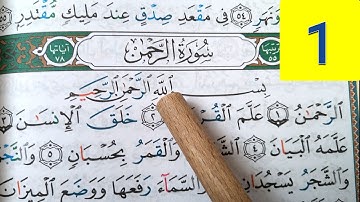 وَنَهَرٍ ٥٤ فِي مَقْعَدِ صِدْقٍ عِندَ مَلِيكٍ مُّقْتَدِرٍ
آياتها ٧٨ سُورَةُ الرَّحْمَٰن ترتيبها ٥٥
1
بِسْمِ اللَّهِ الرَّحْمَٰنِ الرَّحِيمِ
الرَّحْمَٰنُ ١ عَلَّمَ الْقُرْ ٢ خَلَقَ الْإِنسَٰنَ ٣
عَلَّمَهُ الْبَيَانَ ٤ الشَّ وَالْقَمَرُ بِحُسْبَانٍ ٥ وَالنَّجْمُ
وَالشَّجَرُ يَسْجُدَانِ وَالسَّمَاءَ رَفَعَهَا وَوَضَعَ الْمِيزَانَ